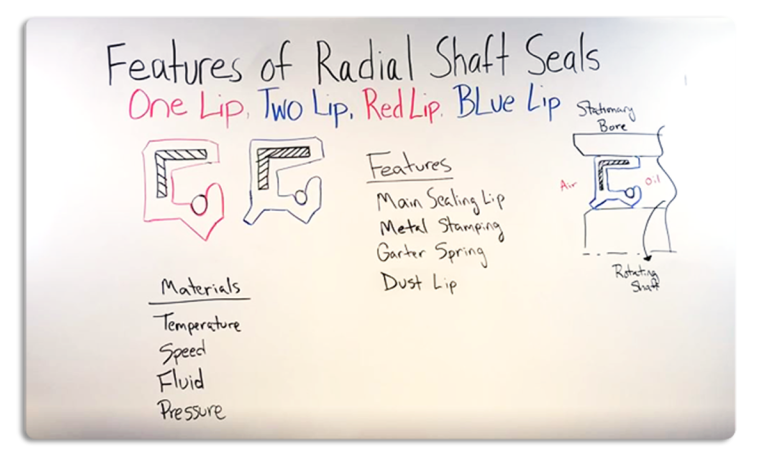 Features of Radial Shaft Seals
One Lip, Two Lip, Red Lip, BLue Lip
Stationary
Bore
Air
Oil
Rotating
Shaft
Features
Main Sealing Lip
Metal Stamping
Garter Spring
Dust Lip
Materials
Temperature
Speed
Fluid
Pressure